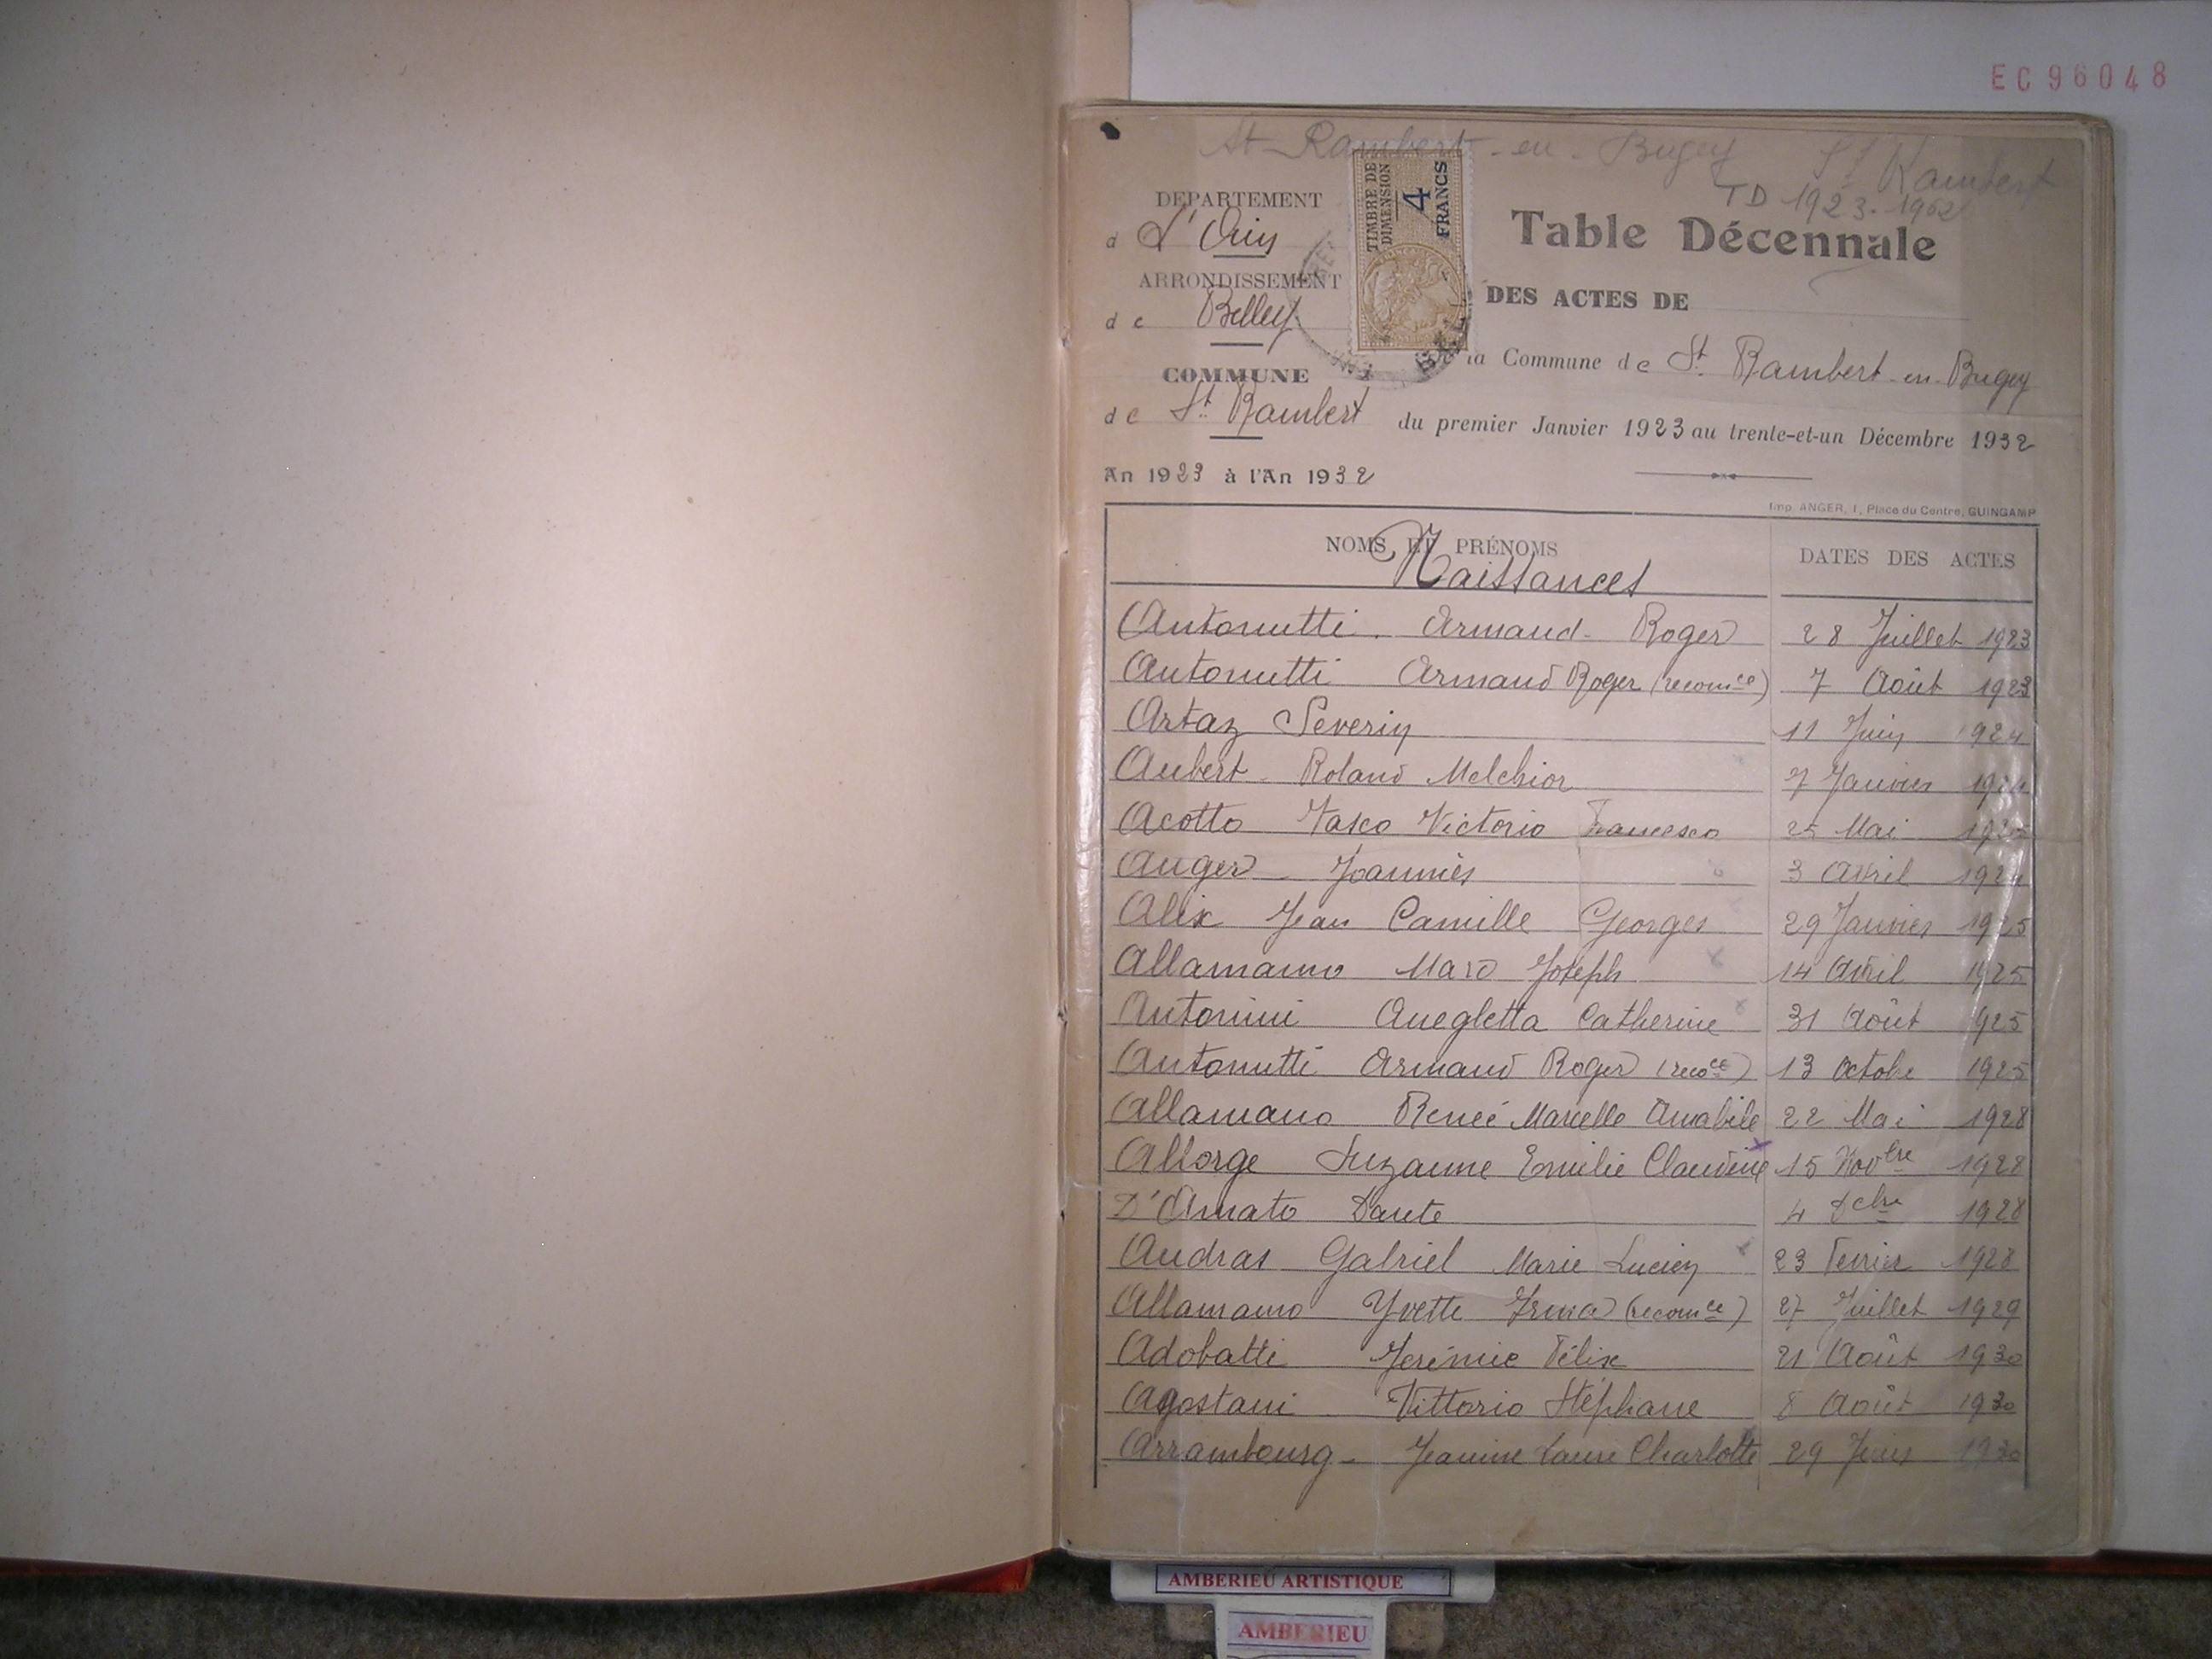 EC96048
St-Rambert-en-Bugey
St Rambert
TD 1923-1962
DEPARTEMENT
d L'Ain
ARRONDISSEMENT
de Belley
COMMUNE
de St Rambert
An 1923 à l'An 1932
TIMBRE DE
DIMENSION
4
FRANCS
Table Décennale
DES ACTES DE
la Commune de St Rambert-en-Bugey
du premier Janvier 1923 au trente-et-un Décembre 1932
Imp. ANGER, 1, Place du Centre, GUINGAMP
NOMS ET PRÉNOMS DATES DES ACTES
Naissances
Antonutti Armand-Roger 28 Juillet 1923
Antonutti Armand Roger (reconce) 7 Août 1923
Artaz Severin 11 Juin 1924
Aubert Roland Melchior 7 Janvier
Acotto Vasco Victorio Francesco 25 Mai
Auger Joannès 3 Avril 1924
Alix Jean Camille Georges 29 Janvier 1925
Allamanno Marc Joseph 14 Avril 1925
Antonini Catherine 31 Août 1925
Antonutti Armand Roger (recoce) 13 Octobre 1925
Allamano Renée Marcelle Amabile 22 Mai 1928
Allorge Suzanne Emilie Claudine 15 Novbre 1928
D'Amato Dante 4 Dcbre 1928
Audras Gabriel Marie Lucien 23 Fevrier 1928
Allamanno Yvette Irma (reconce) 27 Juillet 1929
Adobatti Jerémie Félix 21 Août 1930
Agostani Vittorio Stéphane 8 Août 1930
Arrambourg Jeanine Laure Charlotte 29 Juin 1930
AMBERIEU ARTISTIQUE
AMBERIEU